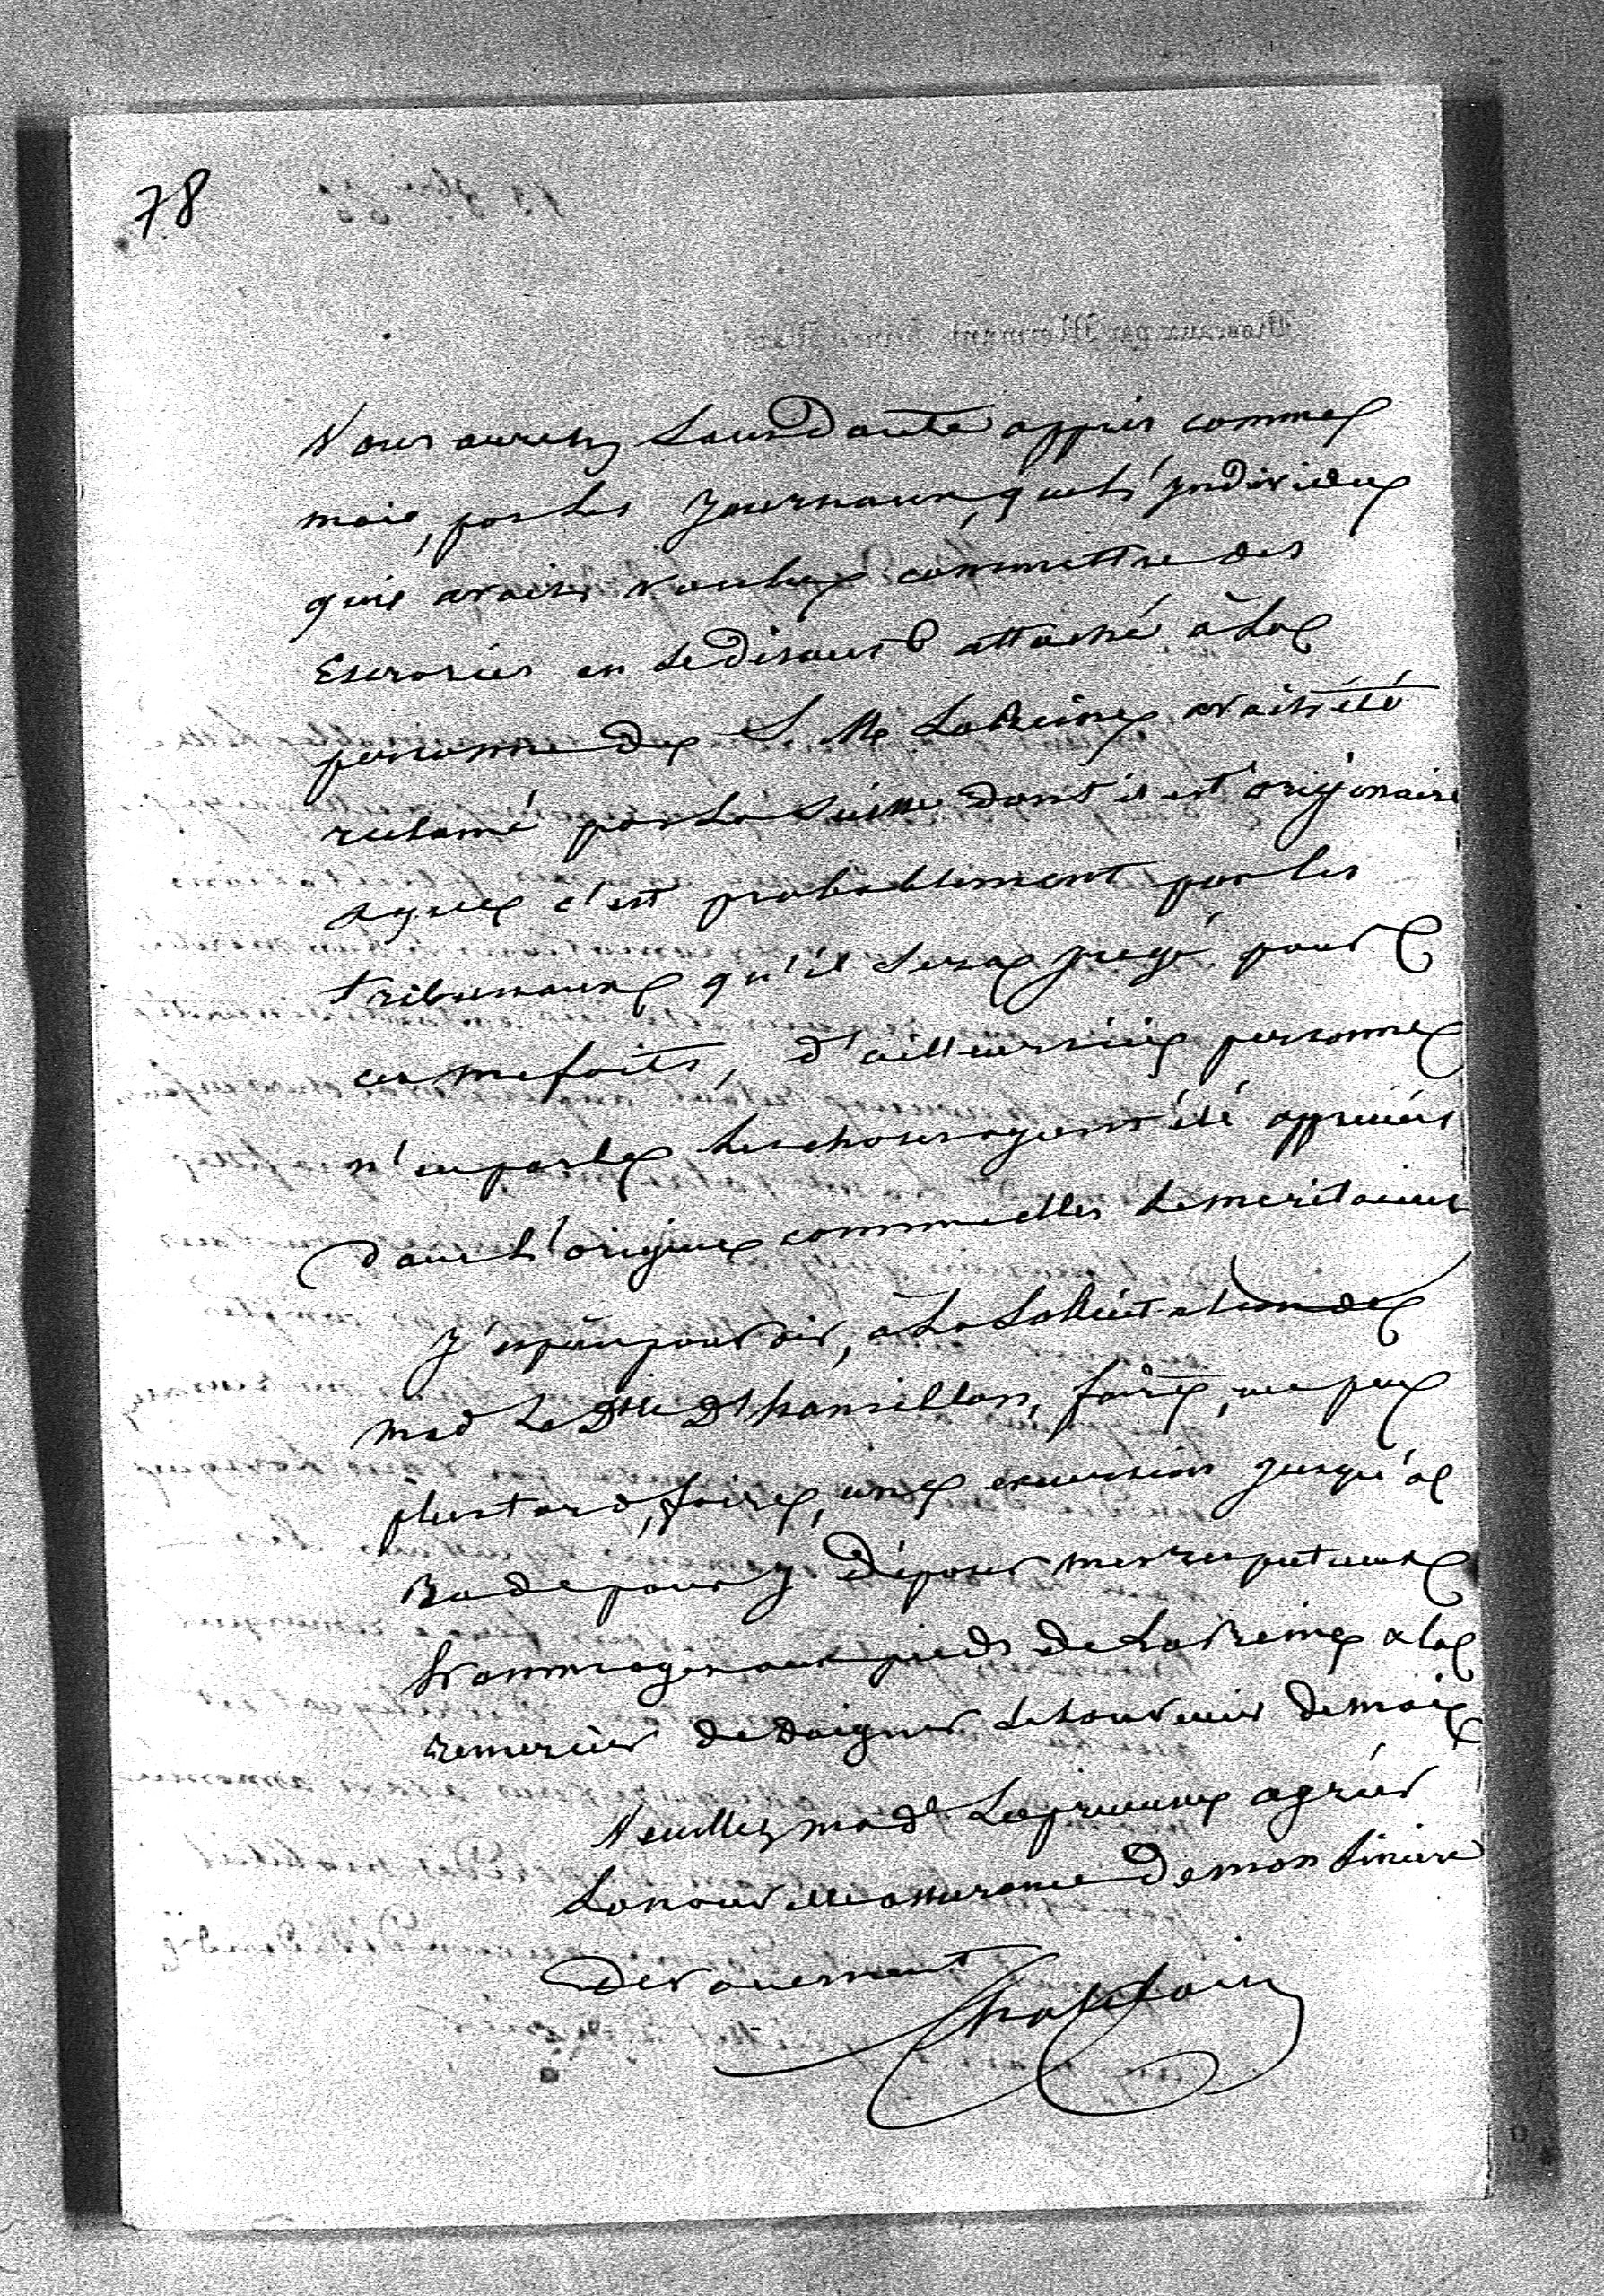 78
Vous aurez sans doute appris comme
moi, par les journaux, que l'individu
qui avait voulu commettre des
Escrocries en se disant attaché à la
personne de S. M. La Reine avait été
reclamé par la Suisse dont il est originaire
& que c'est probablement par les
tribunaux qu'il sera jugé pour
ces mefaits, d'ailleurs ici personne
n'en parle les choses ayant été appreciées
dans l'origine comme elles le meritaient
J'espère pouvoir, à la sollicitation de
Mad La faire, un peu
plus tard, faire, une excursion jusqu'à
Bade pour y déposer mes respectueux
hommages aux pieds de la Reine & la
remercier de daigner se souvenir de moi
Veuillez mad^e La princesse agréer
La nouvelle assurance de mon sincere
devouement